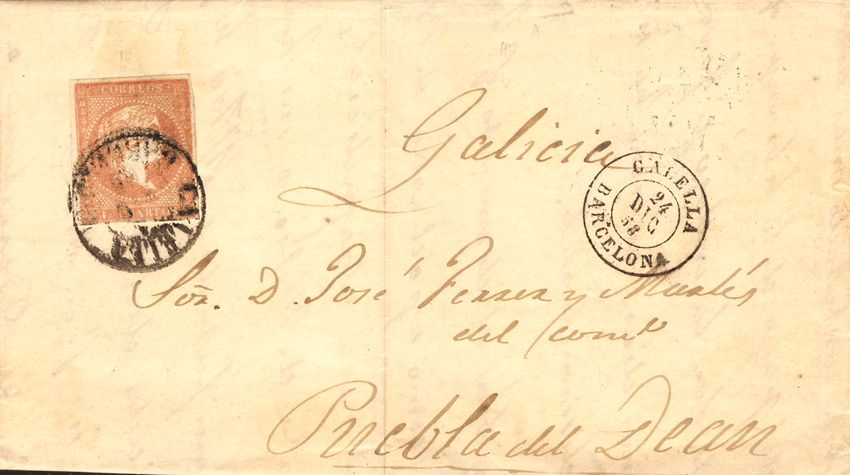 CORREOS
CALELLA
Galicia
CALELLA
24
DIC
58
BARCELONA
Sor. D. José Ferrer y
del Como
Puebla del Dean